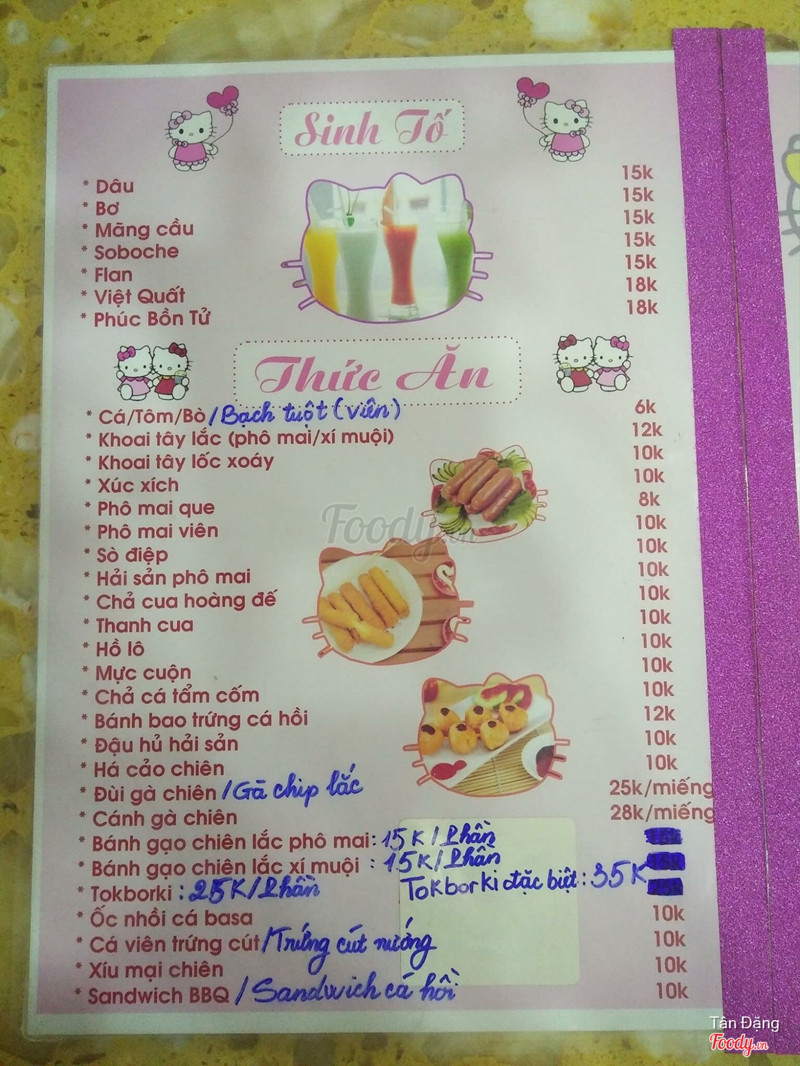 Sinh Tố
* Dâu 15k
* Bơ 15k
* Mãng cầu 15k
* Soboche 15k
* Flan 15k
* Việt Quất 18k
* Phúc Bồn Tử 18k
Thức Ăn
* Cá/Tôm/Bò/Bạch tuột (viên) 6k
* Khoai tây lắc (phô mai/xí muội) 12k
* Khoai tây lốc xoáy 10k
* Xúc xích 10k
* Phô mai que 8k
* Phô mai viên 10k
* Sò điệp 10k
* Hải sản phô mai 10k
* Chả cua hoàng đế 10k
* Thanh cua 10k
* Hồ lô 10k
* Mực cuộn 10k
* Chả cá tẩm cốm 10k
* Bánh bao trứng cá hồi 12k
* Đậu hủ hải sản 10k
* Há cảo chiên 10k
* Đùi gà chiên /Gà chip lắc 25k/miếng
* Cánh gà chiên 28k/miếng
* Bánh gạo chiên lắc phô mai: 15K/Phần
* Bánh gạo chiên lắc xí muội : 15K/Phần
* Tokborki : 25K/Phần Tokborki đặc biệt : 35K
* Ốc nhồi cá basa 10k
* Cá viên trứng cút/Trứng cút nướng 10k
* Xíu mại chiên 10k
* Sandwich BBQ / Sandwich cá hồi 10k
Foody.vn
Tân Đặng
Foody.vn